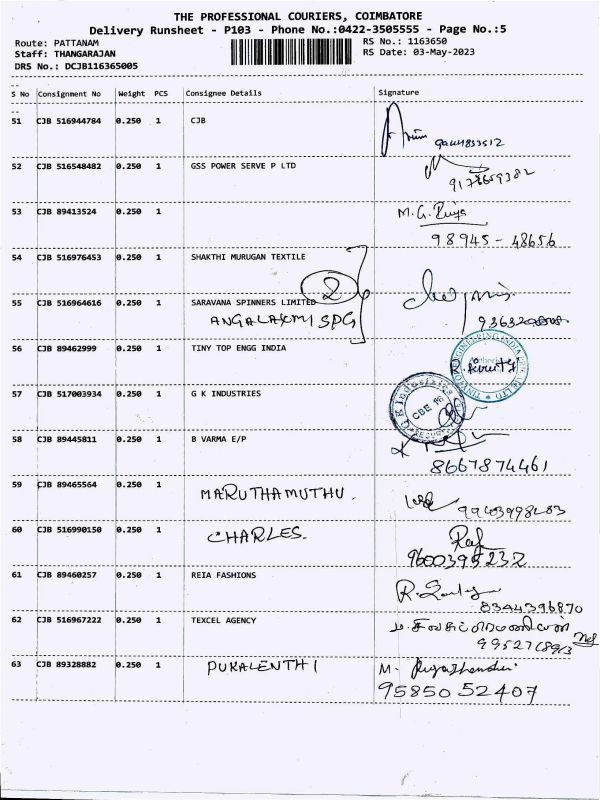 THE PROFESSIONAL COURIERS, COIMBATORE
Delivery Runsheet - P103 - Phone No.:0422-3505555 - Page No.:5
Route: PATTANAM
RS No.: 1163650
Staff: THANGARAJAN
RS Date: 03-May-2023
DRS No.: DCJB116365005
S No Consignment No Weight PCS Consignee Details Signature
51 CJB 516944784 0.250 1 CJB
52 CJB 516548482 0.250 1 GSS POWER SERVE P LTD
53 CJB 89413524 0.250 1 M.G. Priya
98945-48656
54 CJB 516976453 0.250 1 SHAKTHI MURUGAN TEXTILE
2
55 CJB 516964616 0.250 1 SARAVANA SPINNERS LIMITED
ANGALAXMI SPG
56 CJB 89462999 0.250 1 TINY TOP ENGG INDIA
57 CJB 517003934 0.250 1 G K INDUSTRIES
G K Industries
CBE 16
58 CJB 89445811 0.250 1 B VARMA E/P
8667874461
59 CJB 89465564 0.250 1 MARUTHAMUTHU.
60 CJB 516990150 0.250 1 CHARLES. Raj
9600395232
61 CJB 89460257 0.250 1 REIA FASHIONS
8344396870
62 CJB 516967222 0.250 1 TEXCEL AGENCY
63 CJB 89328882 0.250 1 PUKALENTHI M.
95850 52407